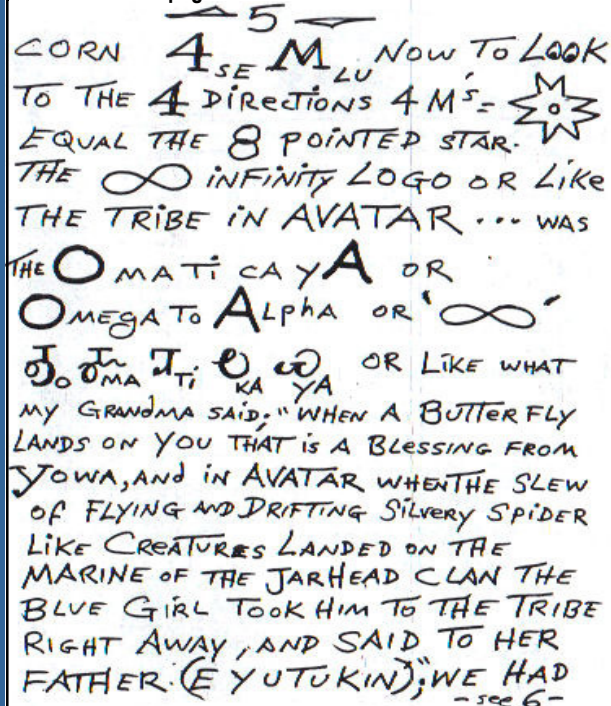 5
CORN Ꮞ SE Ꮇ LU NOW TO LOOK
TO THE 4 DIRECTIONS 4 M's =
EQUAL THE 8 POINTED STAR.
THE ∞ INFINITY LOGO OR LIKE
THE TRIBE IN AVATAR ... WAS
THE OMATICAYA OR
OMEGA TO ALPHA OR "∞"
Ꭳ O Ꮉ MA Ꮨ Ti Ꭷ KA Ꮿ YA OR LIKE WHAT
MY GRANDMA SAID; "WHEN A BUTTERFLY
LANDS ON YOU THAT IS A BLESSING FROM
YOWA, AND IN AVATAR WHEN THE SLEW
OF FLYING AND DRIFTING SILVERY SPIDER
LIKE CREATURES LANDED ON THE
MARINE OF THE JARHEAD CLAN THE
BLUE GIRL TOOK HIM TO THE TRIBE
RIGHT AWAY, AND SAID TO HER
FATHER. (E YUTUKIN); "WE HAD
- SEE 6 -